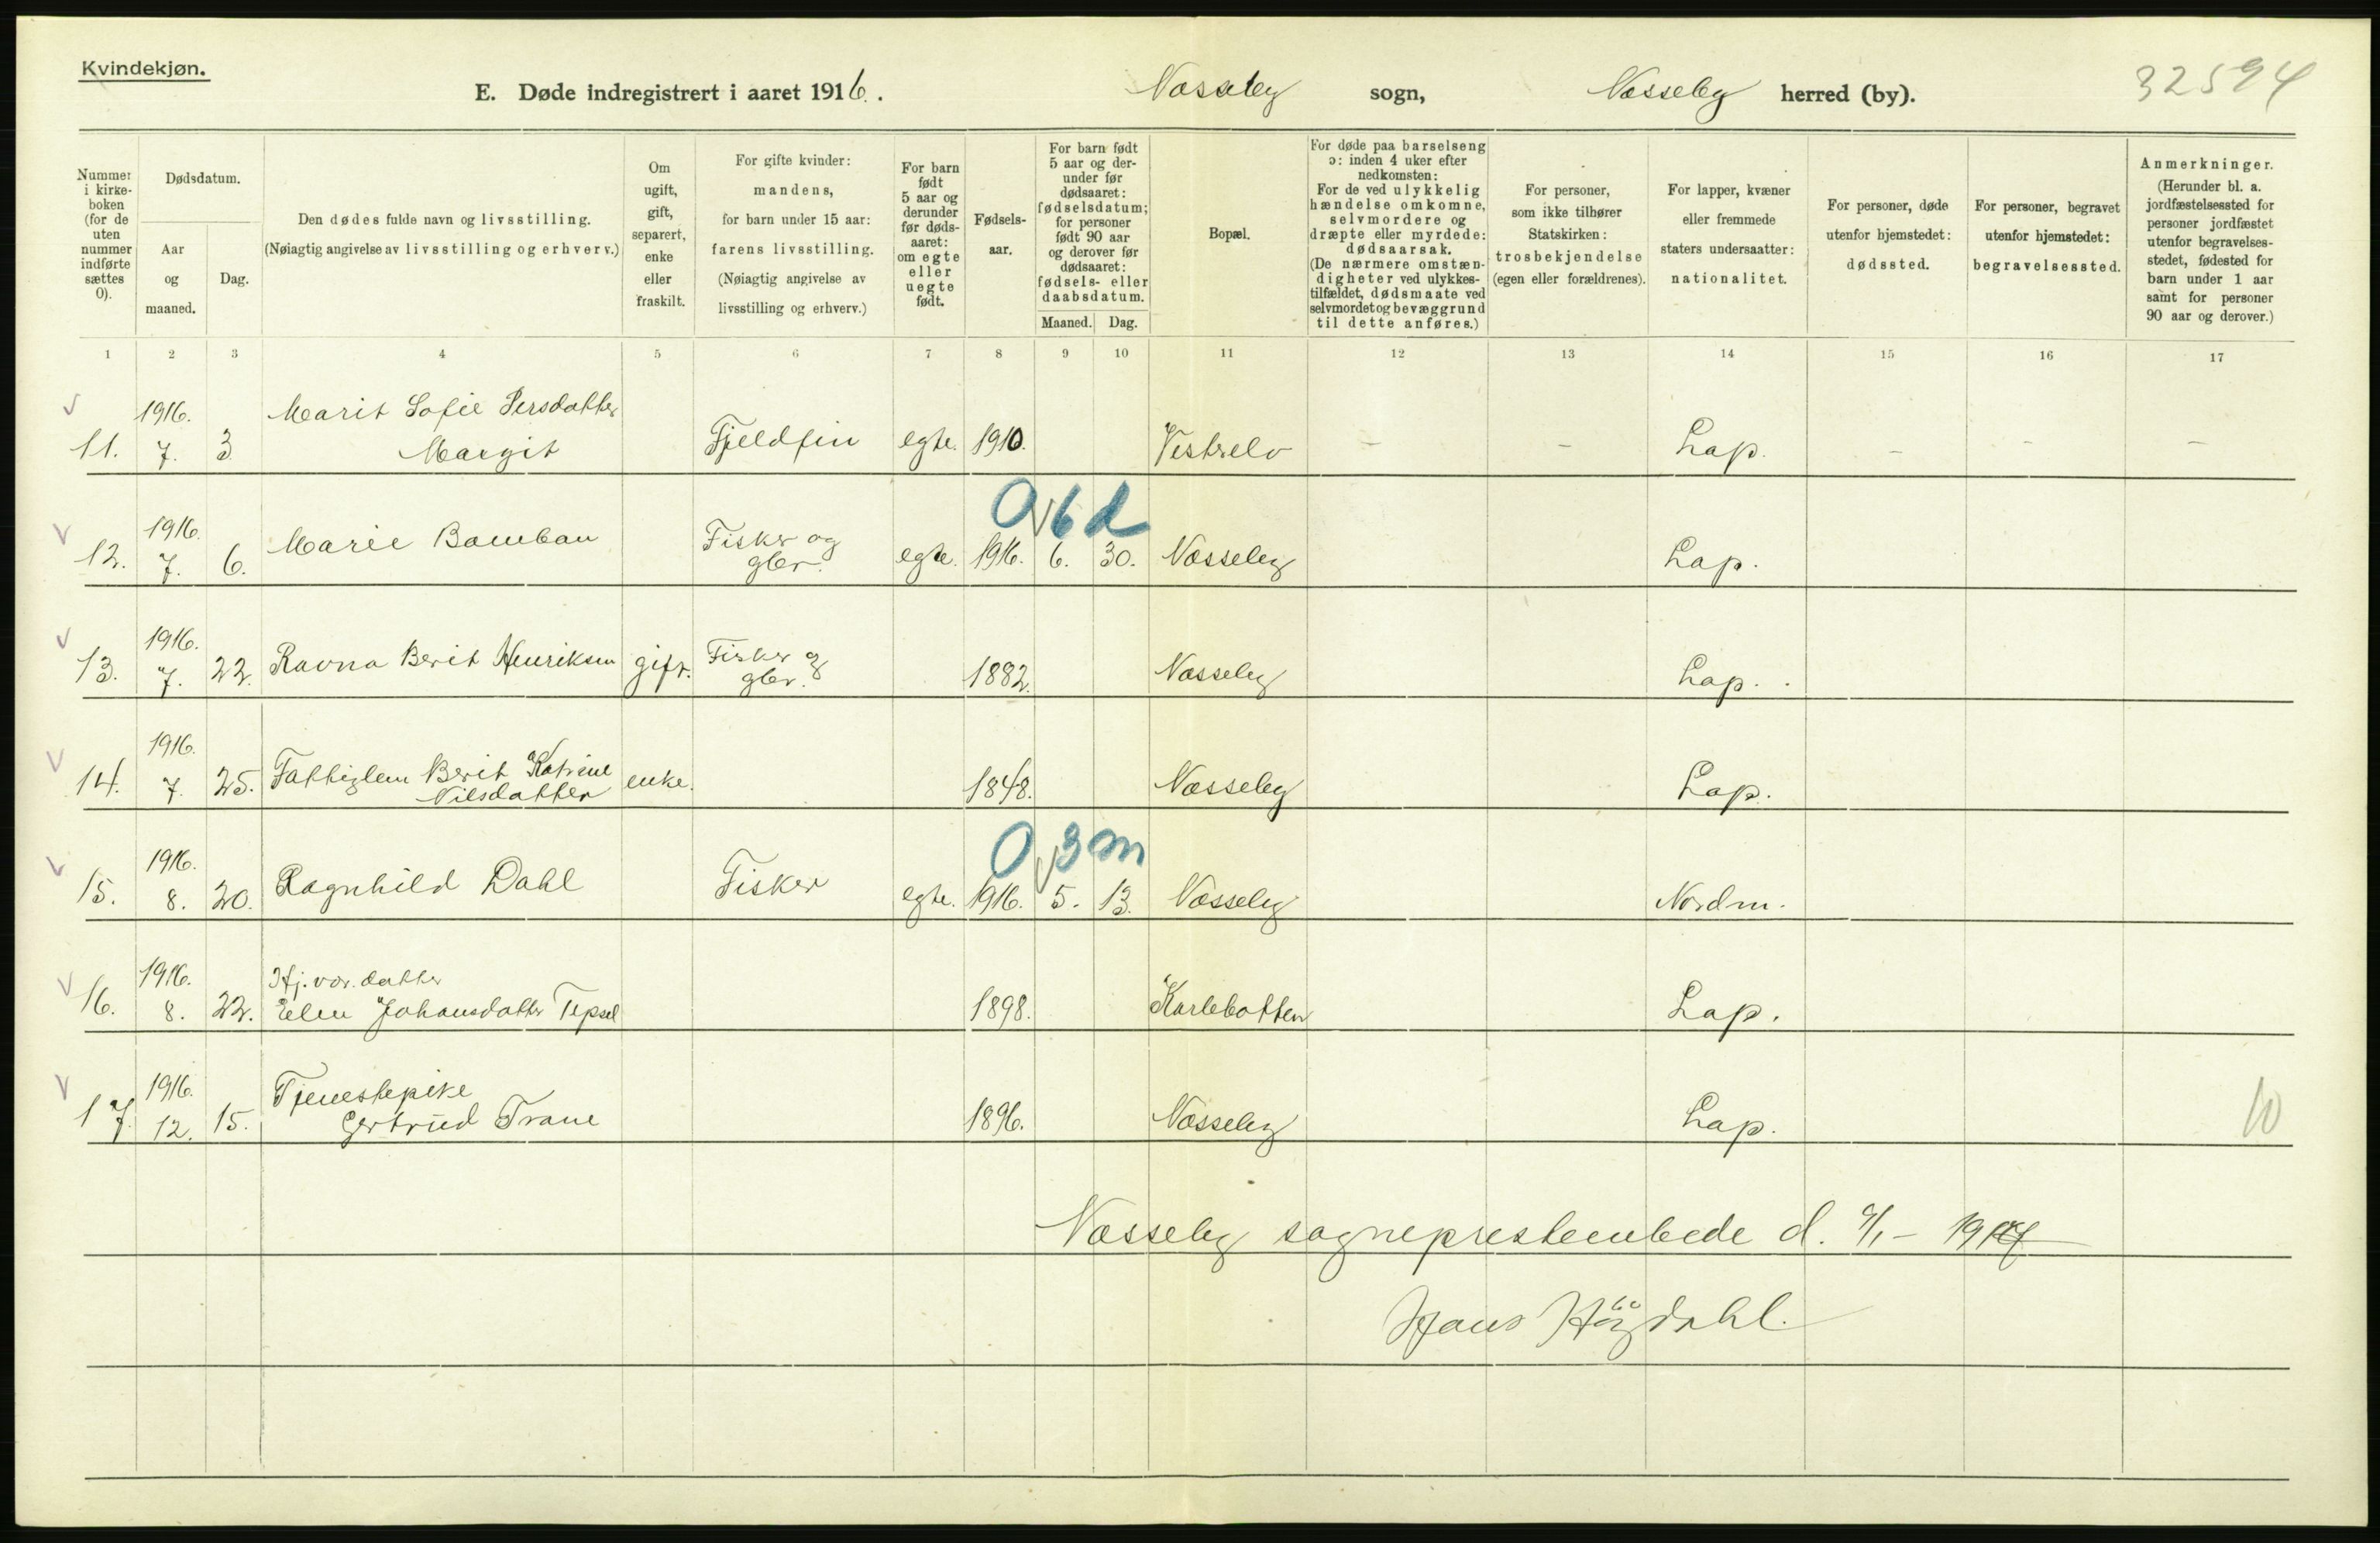 Kvindekjøn.
E. Døde indregistrert i aaret 1916. Nesseby sogn, Nesseby herred (by). 32594
Nummer i kirkeboken (for de uten nummer indførte sættes 0).
Dødsdatum.
Aar og maaned.
Dag.
Den dødes fulde navn og livsstilling.
(Nøiagtig angivelse av livsstilling og erhverv.)
Om ugift, gift, separert, enke eller fraskilt.
For gifte kvinder: mandens, for barn under 15 aar: farens livsstilling. (Nøiagtig angivelse av livsstilling og erhverv.)
For barn født 5 aar og derunder før dødsaaret: om egte eller uegte født.
Fødselsaar.
For barn født 5 aar og derunder før dødsaaret: fødselsdatum; for personer født 90 aar og derover før dødsaaret: fødsels- eller daabsdatum.
Maaned. Dag.
Bopæl.
For døde paa barselseng ɔ: inden 4 uker efter nedkomsten: For de ved ulykkelig hændelse omkomne, selvmordere og dræpte eller myrdede: dødsaarsak. (De nærmere omstændigheter ved ulykkestilfældet, dødsmaate ved selvmordet og bevæggrund til dette anføres.)
For personer, som ikke tilhører Statskirken: trosbekjendelse (egen eller forældrenes).
For lapper, kvæner eller fremmede staters undersaatter: nationalitet.
For personer, døde utenfor hjemstedet: dødssted.
For personer, begravet utenfor hjemstedet: begravelsessted.
Anmerkninger. (Herunder bl. a. jordfæstelsessted for personer jordfæstet utenfor begravelsesstedet, fødested for barn under 1 aar samt for personer 90 aar og derover.)
1 2 3 4 5 6 7 8 9 10 11 12 13 14 15 16 17
1916. Marit Sofie Persdatter
11. 7. 3. Margit Fjeldfin egte. 1910. Vestrelv - - Lap. - - -
0 6 d
1916. Marie Bamban Fisker og
12. 7. 6. gbr. egte. 1916. 6. 30. Nesseby Lap.
1916. Ravna Berit Henriksen Fisker og
13. 7. 22. gift. gbr. 1882. Nesseby Lap.
1916.
14. 7. 25. Fattiglem Berit Katrine enke. 1848. Nesseby Lap.
Nilsdatter
0 3 m
1916.
15. 8. 20. Ragnhild Dahl Fisker egte. 1916. 5. 13. Nesseby Nordm.
1916. Hj. vær. datter
16. 8. 22. Elen Johansdatter Tepsel 1898. Karlebotten Lap.
1916. Tjenestepike
17. 12. 15. Gertrud Trane 1896. Nesseby Lap. 10
Nesseby sogneprestembede d. 1917
Hans Högdahl.